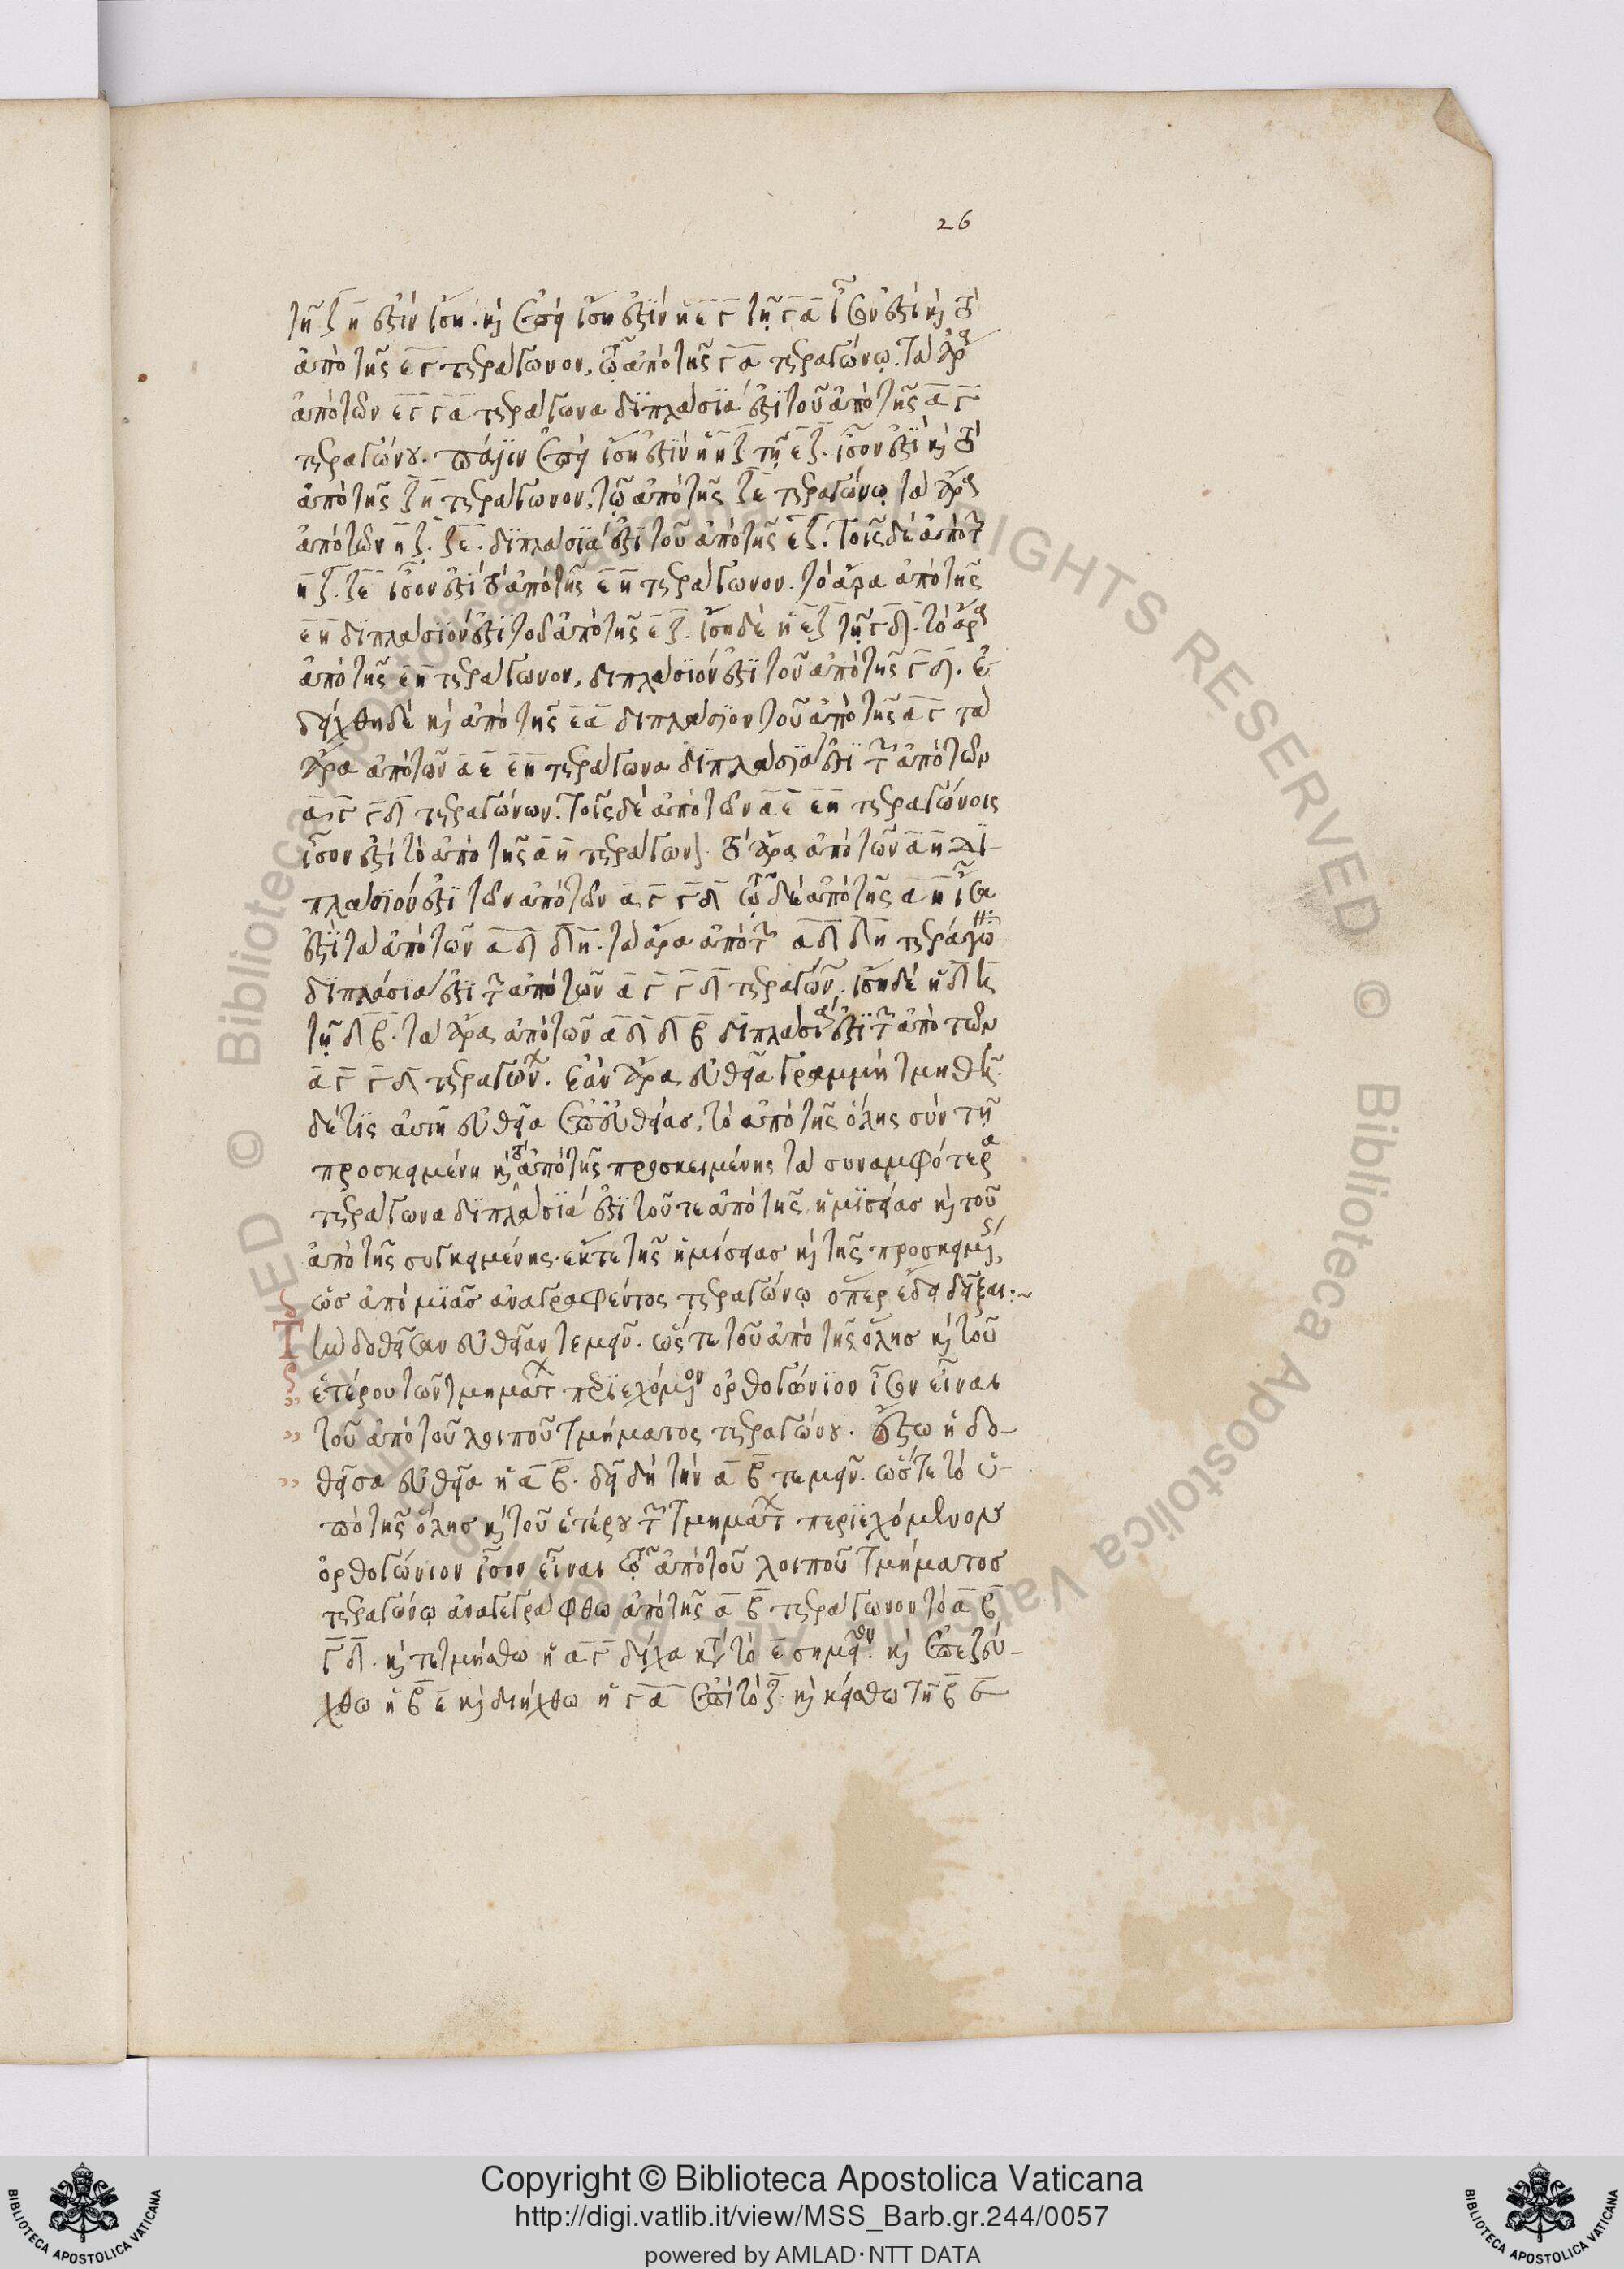 26
τῆ ζη ἐστὶν ἴση. καὶ ἐπεὶ ἴση ἐστὶν ἡ εγ τῇ γα ἴσον ἐστὶ καὶ τὸ
ἀπὸ τῆς εγ τετράγωνον, τῷ ἀπὸ τῆς γα τετραγώνῳ. τὰ ἄρα
ἀπὸ τῶν εγ γα τετράγωνα διπλάσιά ἐστι τοῦ ἀπὸ τῆς αγ
τετραγώνου. πάλιν ἐπεὶ ἴση ἐστὶν ἡ ηζ τῇ εζ. ἴσον ἐστὶ καὶ τὸ
ἀπὸ τῆς ζη τετράγωνον, τῷ ἀπὸ τῆς ζε τετραγώνῳ τὰ ἄρα
ἀπὸ τῶν ηζ. ζε. διπλάσιά ἐστι τοῦ ἀπὸ τῆς εζ. τοῖς δὲ ἀπὸ τῶν
ηζ. ζε ἴσον ἐστὶ τὸ ἀπὸ τῆς εη τετράγωνον. τὸ ἄρα ἀπὸ τῆς
εη διπλάσιόν ἐστι τοῦ ἀπὸ τῆς εζ. ἴση δὲ ἡ εζ τῇ γδ. τὸ ἄρα
ἀπὸ τῆς εη τετράγωνον, διπλάσιόν ἐστι τοῦ ἀπὸ τῆς γδ. ἐ-
δείχθη δὲ καὶ ἀπὸ τῆς εα διπλάσιον τοῦ ἀπὸ τῆς αγ τὰ
ἄρα ἀπὸ τῶν αε εη τετράγωνα διπλάσιά ἐστι τῶν ἀπὸ τῶν
αγ γδ τετραγώνων. τοῖς δὲ ἀπὸ τῶν αε εη τετραγώνοις
ἴσον ἐστὶ τὸ ἀπὸ τῆς αη τετράγωνον. τὸ ἄρα ἀπὸ τῶν αη δι-
πλάσιόν ἐστι τῶν ἀπὸ τῶν αγ γδ τῷ δὲ ἀπὸ τῆς αη ἴσα
ἐστὶ τὰ ἀπὸ τῶν αδ δη. τὰ ἄρα ἀπὸ τῶν αδ δη τετράγω
διπλάσιά ἐστι τῶν ἀπὸ τῶν αγ γδ τετραγών. ἴση δὲ ἡ δη
τῇ δβ. τὰ ἄρα ἀπὸ τῶν αδ δβ διπλάσιά ἐστι τῶν ἀπὸ τῶν
αγ γδ τετραγών. ἐὰν ἄρα εὐθεῖα γραμμὴ τμηθῇ
δέ τις αὐτῇ εὐθεῖα ἐπ' εὐθείας, τὸ ἀπὸ τῆς ὅλης σὺν τῇ
προσκειμένη καὶ τὸ ἀπὸ τῆς προσκειμένης τὰ συναμφότερα
τετράγωνα διπλάσιά ἐστι τοῦ τε ἀπὸ τῆς ἡμισείας καὶ τοῦ
ἀπὸ τῆς συγκειμένης. ἔκ τε τῆς ἡμισείας καὶ τῆς προσκειμένης,
ὡς ἀπὸ μιᾶς ἀναγραφέντος τετραγώνῳ ὅπερ ἔδει δεῖξαι:~
Τὴν δοθεῖσαν εὐθεῖαν τεμεῖν. ὥστε τοῦ ἀπὸ τῆς ὅλης καὶ τοῦ
ἑτέρου τῶν τμημάτ περιεχόμενον ὀρθογώνιον ἴσον εἶναι
τοῦ ἀπὸ τοῦ λοιποῦ τμήματος τετραγώνου. ἔστω ἡ δο-
θεῖσα εὐθεῖα ἡ αβ. δεῖ δὴ τὴν αβ τεμεῖν. ὥστε τὸ ὑ-
πὸ τῆς ὅλης καὶ τοῦ ἑτέρου τῶν τμημάτ περιεχόμενον
ὀρθογώνιον ἴσον εἶναι τῷ ἀπὸ τοῦ λοιποῦ τμήματος
τετραγώνῳ ἀναγεγράφθω ἀπὸ τῆς αβ τετράγωνον τὸ αβ
γδ. καὶ τετμήσθω ἡ αγ δίχα κατὰ τὸ ε σημεῖον. καὶ ἐπεζεύ-
χθω ἡ βε καὶ διήχθω ἡ γα ἐπὶ τὸ ζ. καὶ κείσθω τῇ βε
Copyright © Biblioteca Apostolica Vaticana
http://digi.vatlib.it/view/MSS_Barb.gr.244/0057
powered by AMLAD·NTT DATA